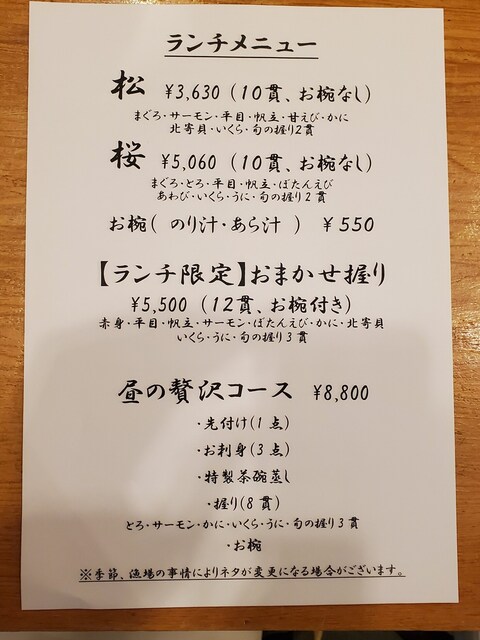 ランチメニュー
松 ¥3,630 (10貫、お椀なし)
まぐろ・サーモン・平目・帆立・甘えび・かに
北寄貝・いくら・旬の握り2貫
桜 ¥5,060 (10貫、お椀なし)
まぐろ・とろ・平目・帆立・ぼたんえび
あわび・いくら・うに・旬の握り2貫
お椀( のり汁・あら汁 ) ¥550
【ランチ限定】おまかせ握り
¥5,500 (12貫、お椀付き)
赤身・平目・帆立・サーモン・ぼたんえび・かに・北寄貝
いくら・うに・旬の握り3貫
昼の贅沢コース ¥8,800
・先付け(1点)
・お刺身(3点)
・特製茶碗蒸し
・握り(8貫)
とろ・サーモン・かに・いくら・うに・旬の握り3貫
・お椀
※季節、漁場の事情によりネタが変更になる場合がございます。